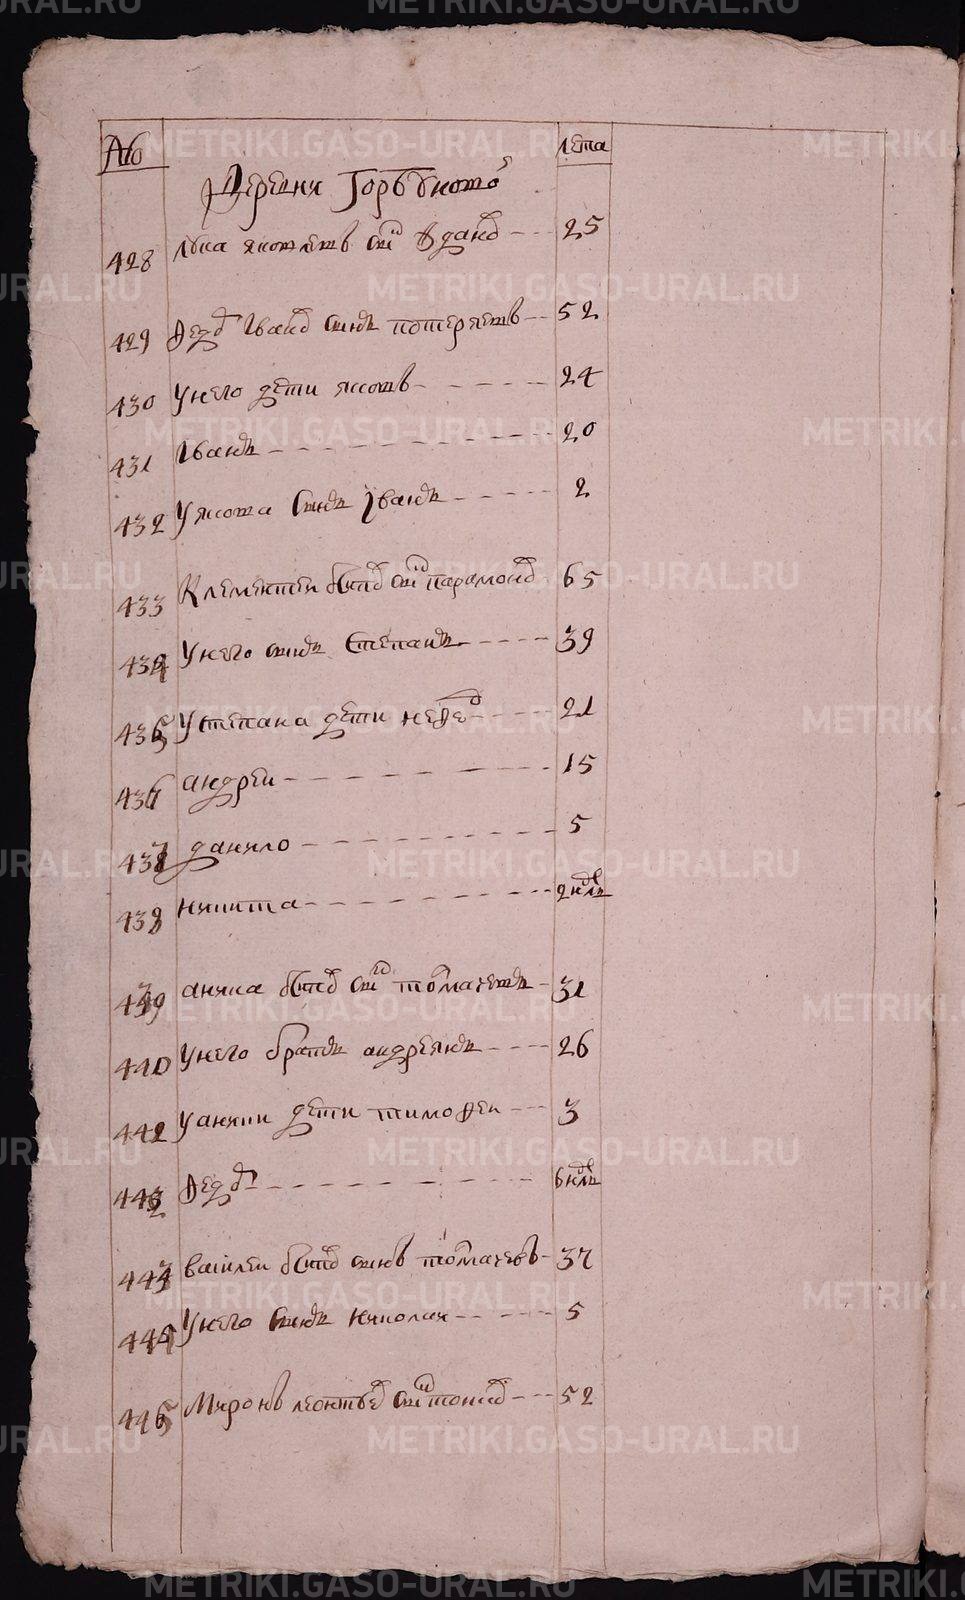 METRIKI.GASO-URAL.RU
№ лета
Деревня Горбунова
428 лука яковлевъ снъ 25
429 Федо Иванов сынъ потеряевъ 52
430 У него дети яковъ 24
431 Иванъ 20
432 У якова сынъ Иванъ 2
433 Клементеи снъ парамонов 65
434 У него сынъ Степанъ 39
435 У степана дети нефед 21
436 андреи 15
437 данило 5
438 никита 2 нде
439 аника снъ толмачевъ 31
440 У него братъ андреянъ 26
441 У аники дети тимофеи 3
442 Федо 6 нде
443 василеи сынъ толмачевъ 37
444 У него сынъ николаи 5
445 Миронъ леонтьев снъ 52